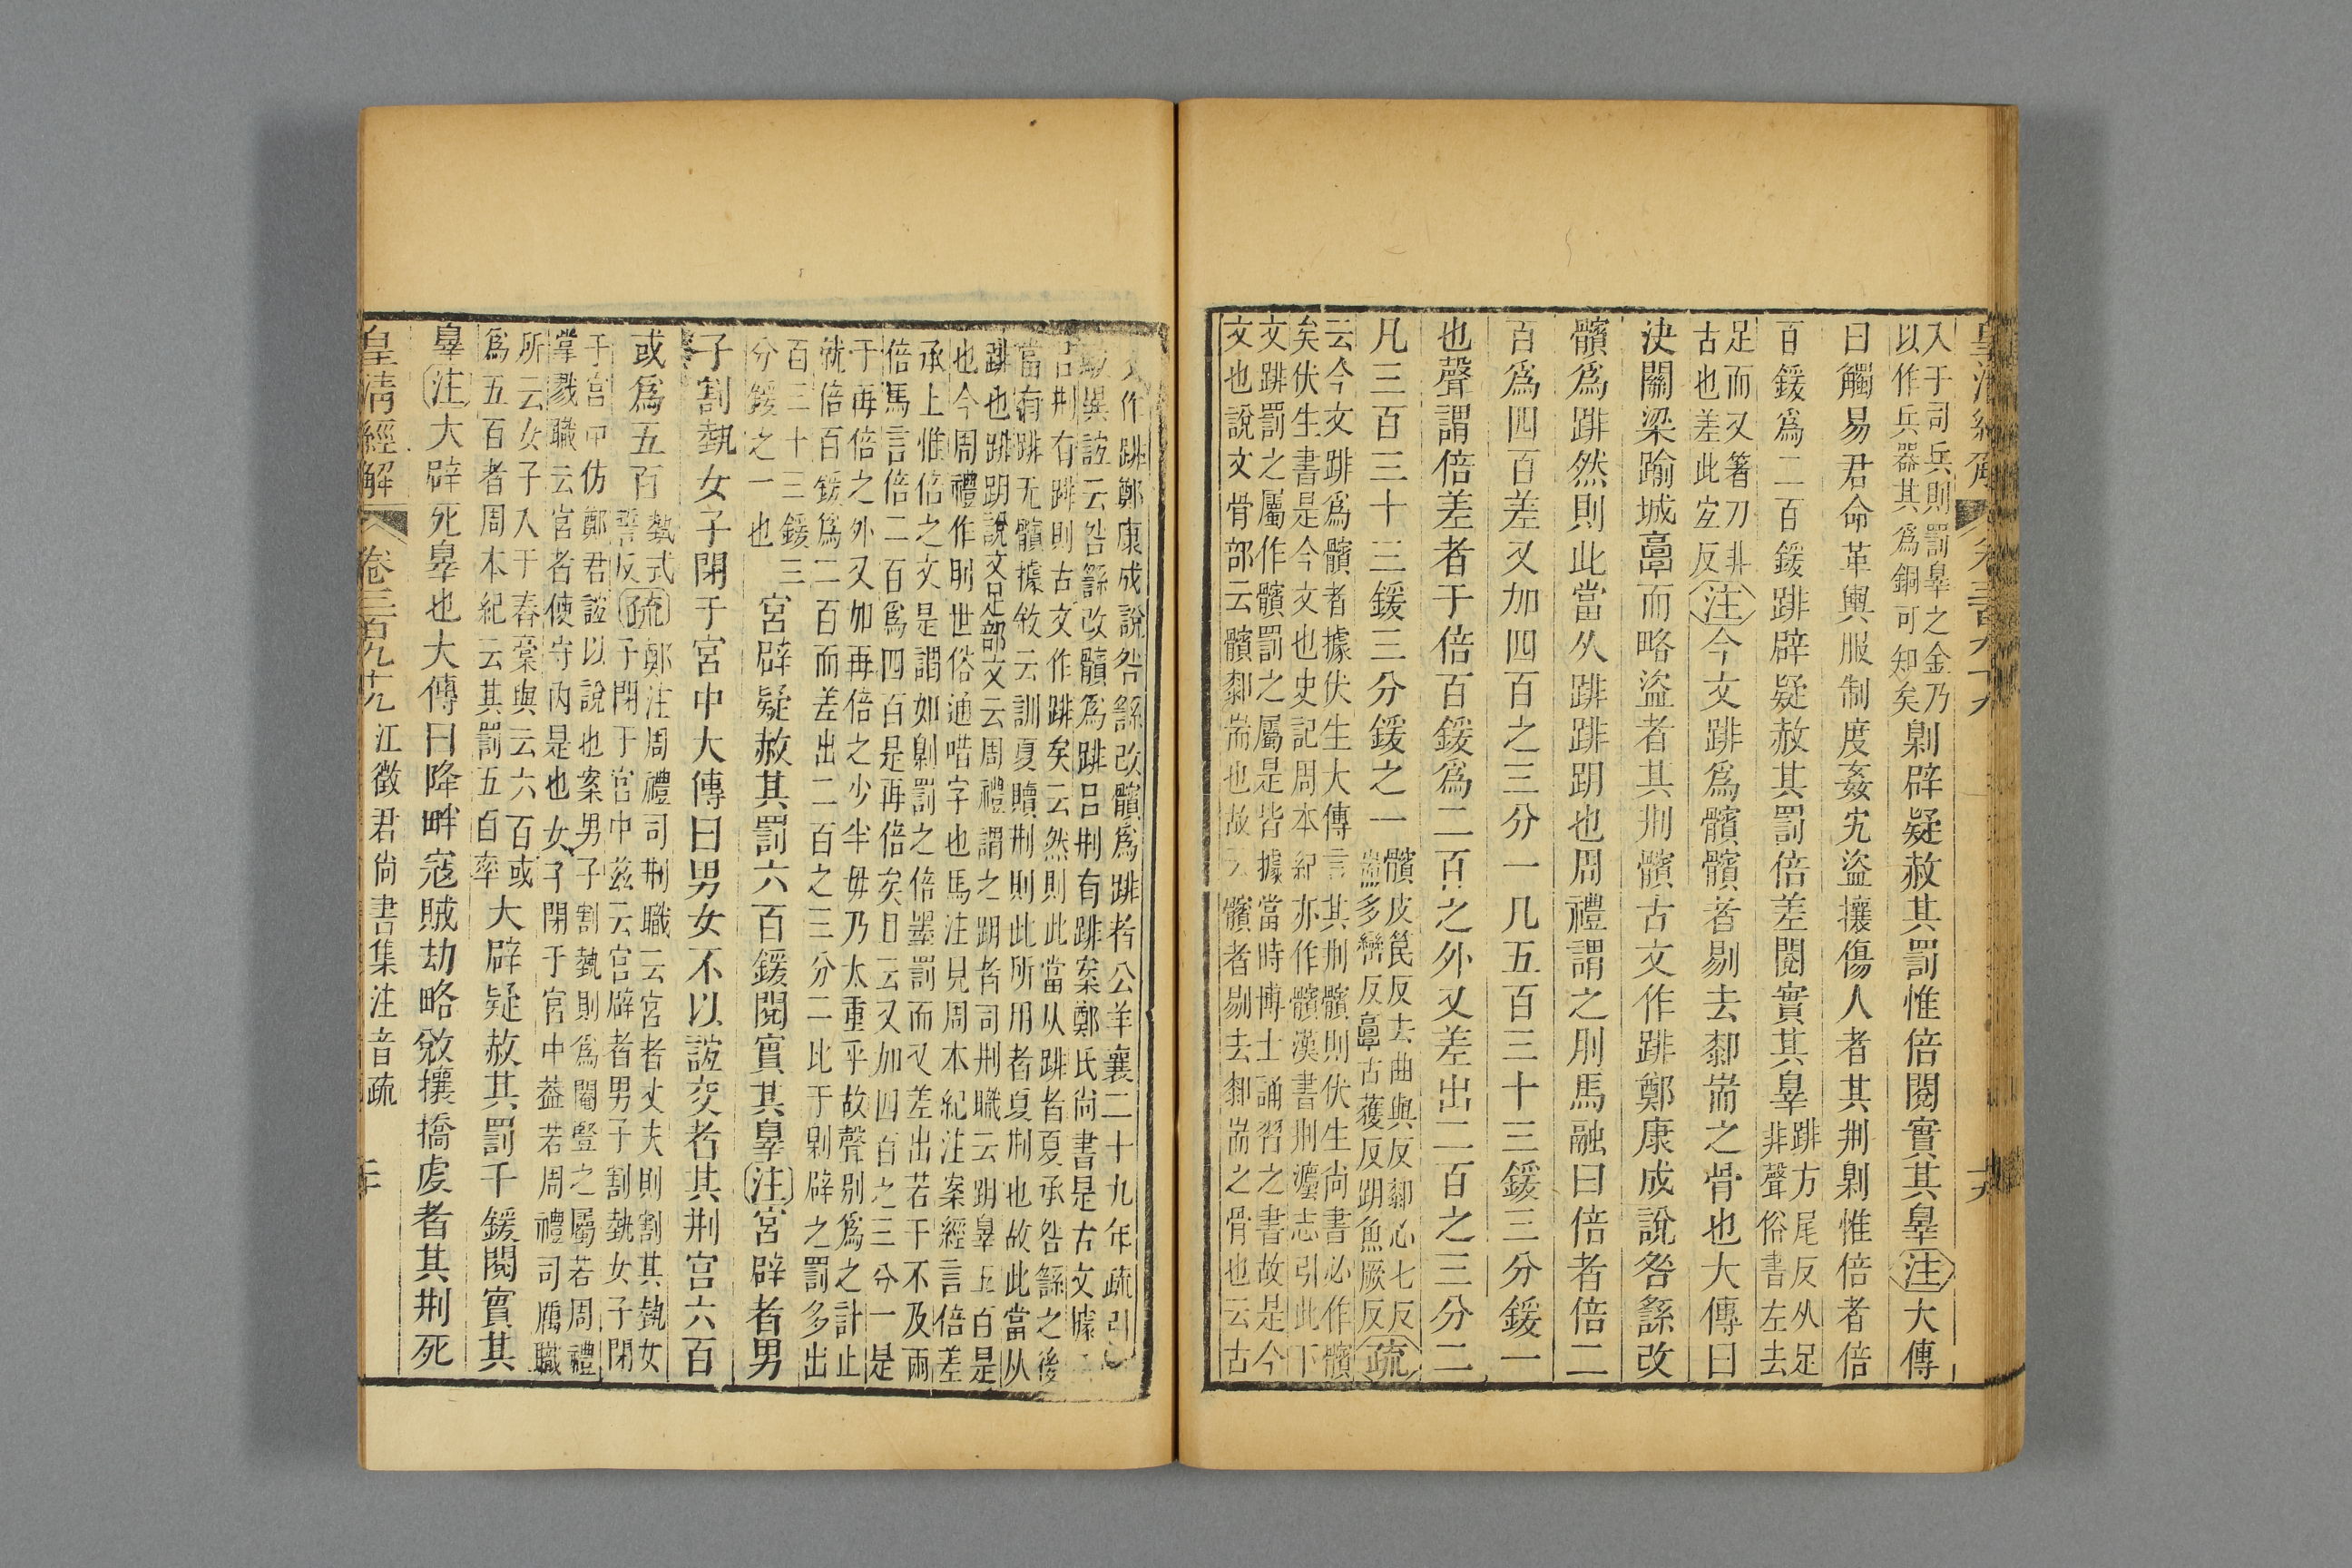 皇清經解 卷三百九十九 十九
入于司兵則罰辠之金乃
以作兵器其爲銅可知矣
劓辟疑赦其罰惟倍閱實其辠注大傳
曰觸易君命革輿服制度姦宄盜攘傷人者其𠛬劓惟倍者倍
百鍰爲二百鍰跸辟疑赦其罰倍差閱實其辠
跸方尾反从足
非聲俗書左去
足而又箸刀非
古也差此宐反
注今文跸爲髕髕者剔去厀耑之骨也大傳曰
決關梁踰城𩫏而略盜者其𠛬髕古文作跸鄭康成說咎繇改
髕爲跸然則此當从跸跸跀也周禮謂之刖馬融曰倍者倍二
百爲四百差又加四百之三分一凡五百三十三鍰三分鍰一
也聲謂倍差者于倍百鍰爲二百之外又差出二百之三分二
凡三百三十三鍰三分鍰之一
髕皮笢反去曲與反厀心七反
耑多巒反𩫏古蒦反跀魚厥反
疏
云今文跸爲髕者據伏生大傳言其𠛬髕則伏生尚書必作髕
矣伏生書是今文也史記周本紀亦作髕漢書𠛬灋志引此下
文跸罰之屬作髕罰之屬是皆據當時博士誦習之書故是今
文也說文骨部云髕厀耑也故云髕者剔去厀耑之骨也云古
文作跸鄭康成說咎繇改髕爲跸者公羊襄二十九年疏引
駮異誼云咎繇改髕爲跸呂𠛬有跸案鄭氏尚書是古文據
呂𠛬有跸則古文作跸矣云然則此當从跸者夏承咎繇之後
當有跸无髕據敘云訓夏贖𠛬則此所用者夏𠛬也故此當从
跸也跸跀說文足部文云周禮謂之跀者司𠛬職云跀辠五百是
也今周禮作刖世俗通喈字也馬注見周本紀注案經言倍差
承上惟倍之文是謂如劓罰之倍墨罰而又差出若干不及兩
倍馬言倍二百爲四百是再倍矣日云又加四百之三分一是
于再倍之外又加再倍之少半毋乃太重乎故聲別爲之計止
就倍百鍰爲二百而差出二百之三分二比于劓辟之罰多出
百三十三鍰三
分鍰之一也
宮辟疑赦其罰六百鍰閱實其辠注宮辟者男
子割埶女子閉于宮中大傳曰男女不以誼交者其𠛬宮六百
或爲五百
埶式
誓反
疏
鄭注周禮司𠛬職云宮者丈夫則割其埶女
子閉于宮中茲云宮辟者男子割埶女子閉
于宮中仿鄭君誼以說也案男子割埶則爲閽豎之屬若周禮
掌戮職云宮者使守內是也女子閉于宮中葢若周禮司厲職
所云女子入于舂槀與云六百或
爲五百者周本紀云其罰五百率
大辟疑赦其罰千鍰閱實其
辠注大辟死辠也大傳曰降畔寇賊劫略敚攘撟虔者其𠛬死
皇清經解 卷三百九十九 江徵君尚書集注音疏 二十